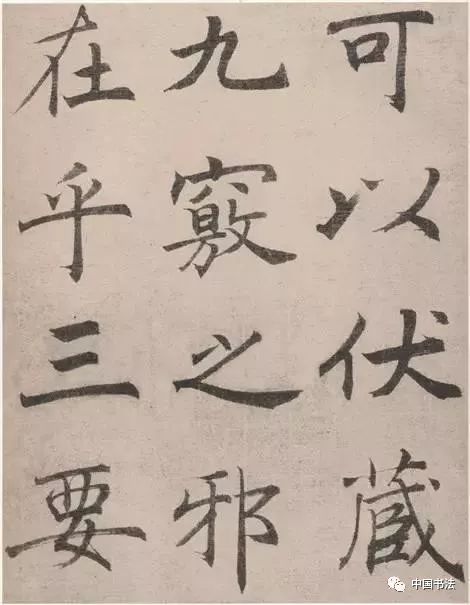 可以伏藏
九竅之邪
在乎三要
中国书法